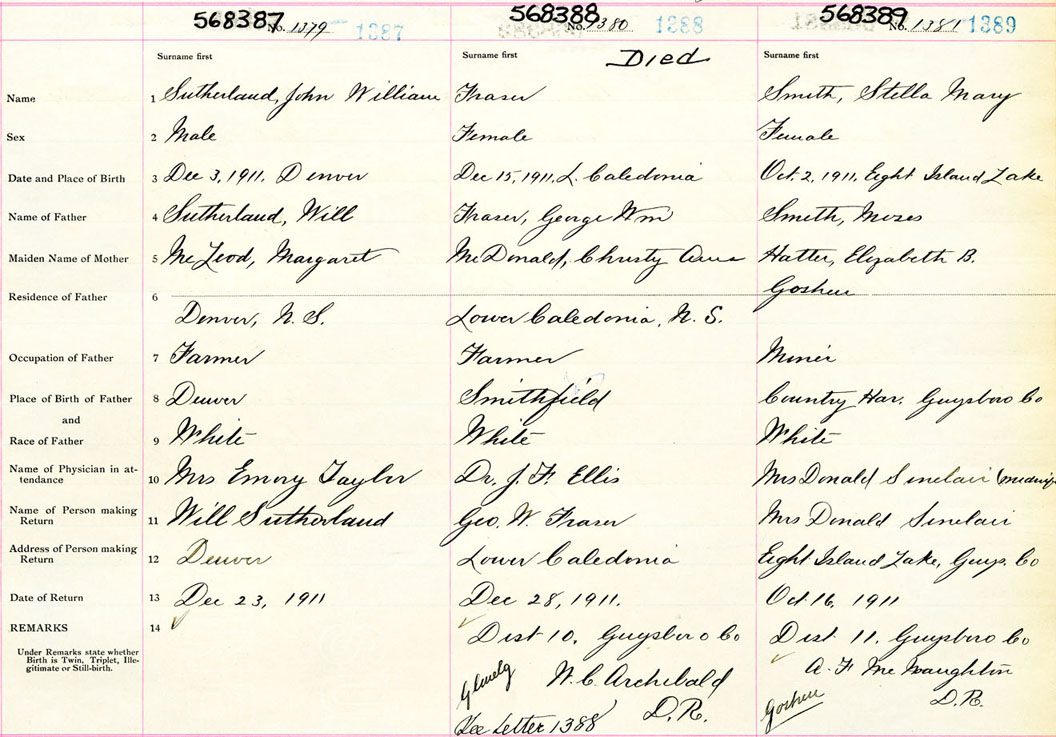 568387 568388 568389
No. 1379 1387 No. 1380 1388 No. 1381 1389
Surname first Surname first Died Surname first
Name 1 Sutherland, John William Fraser Smith, Stella Mary
Sex 2 Male Female Female
Date and Place of Birth 3 Dec 3, 1911. Denver Dec 15, 1911, L. Caledonia Oct. 2, 1911, Eight Island Lake
Name of Father 4 Sutherland, Will Fraser, George Wm Smith, Moses
Maiden Name of Mother 5 McLeod, Margaret McDonald, Christy Ann Hatter, Elizabeth B.
Residence of Father 6 Goshen
Denver, N. S. Lower Caledonia, N. S.
Occupation of Father 7 Farmer Farmer Miner
Place of Birth of Father 8 Denver Smithfield Country Har. Guysboro Co
and
Race of Father 9 White White White
Name of Physician in at-
tendance 10 Mrs Emory Taylor Dr. J. F. Ellis Mrs Donald Sinclair
Name of Person making
Return 11 Will Sutherland Geo. W. Fraser Mrs Donald Sinclair
Address of Person making
Return 12 Denver Lower Caledonia Eight Island Lake, Guys. Co
Date of Return 13 Dec 23, 1911 Dec 28, 1911. Oct 16, 1911
REMARKS 14 Dist 10, Guysboro Co Dist 11. Guysboro Co
Under Remarks state whether
Birth is Twin, Triplet, Ille-
gitimate or Still-birth.
Glenelg W. C. Archibald A. F McNaughton
D. R. Goshen D. R.
See Letter 1388